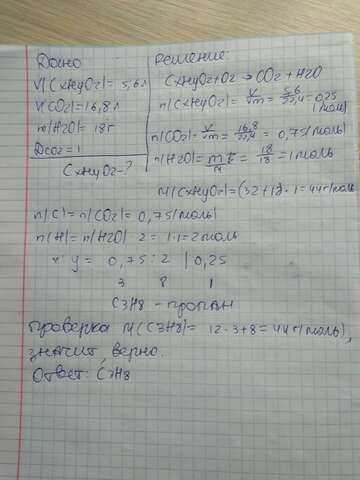 Дано
V(CxHyOz)=5,6л
V(CO2)=16,8л
m(H2O)=18г
Dco2=1
CxHyOz-?
Решение:
CxHyOz+O2 → CO2+H2O
n(CxHyOz)=V/Vm=5,6/22,4=0,25
(моль)
n(CO2)=V/Vm=16,8/22,4=0,75(моль)
n(H2O)=m/M=18/18=1моль
M(CxHyOz)=(32+12)·1=44г/моль
n(C)=n(CO2)=0,75(моль)
n(H)=n(H2O)·2=1·1=2моль
x:y=0,75:2 |0,25
3 8 1
C3H8-пропан
проверка M(C3H8)=12·3+8=44г(моль),
значит, верно.
Ответ: C3H8